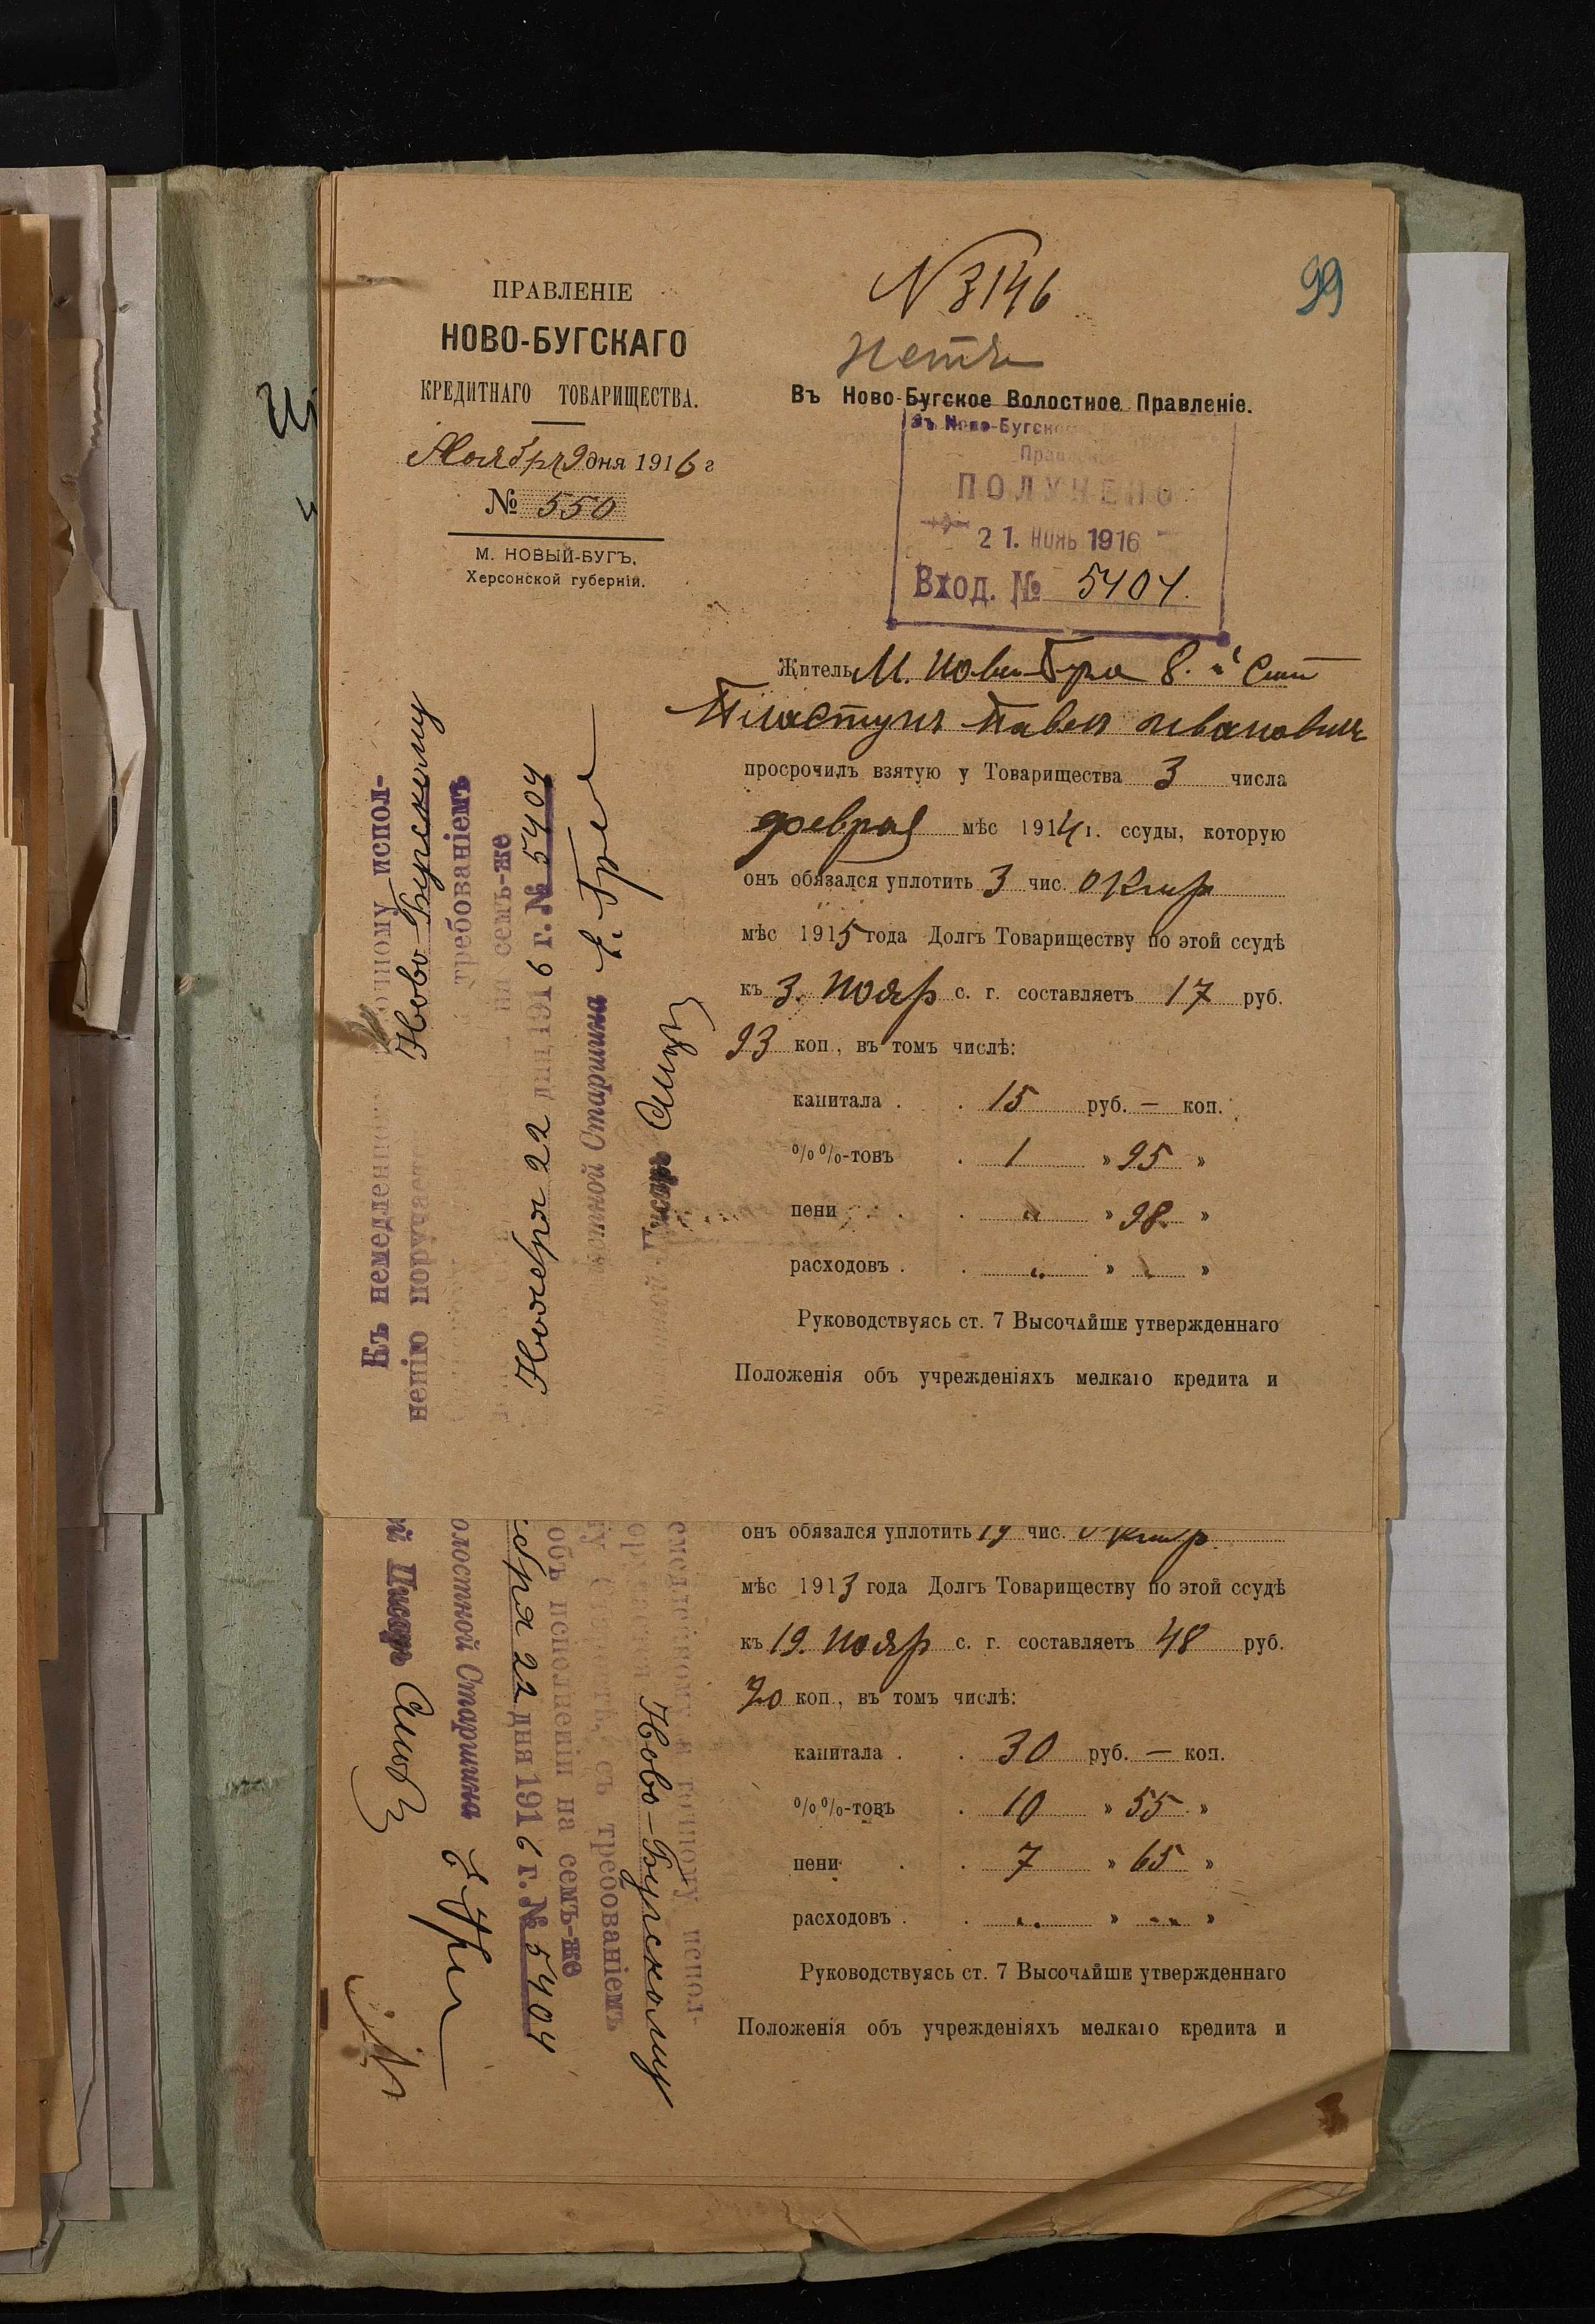 99
N 3146
нетъ
ПРАВЛЕНІЕ
НОВО-БУГСКАГО
КРЕДИТНАГО ТОВАРИЩЕСТВА.
Ноября 9 дня 1916 г
№ 550
М. НОВЫЙ-БУГЪ,
Херсонской губерніи.
Въ Ново-Бугское Волостное Правленіе.
Въ Ново-Бугско
Правлені
ПОЛУЧЕНО
21. НОЯБ 1916
Вход. № 5404.
Житель М. Новый Буга 8.
Пластунъ Павелъ Ивановичъ
просрочилъ взятую у Товарищества 3 числа
феврал мѣс 1914 г. ссуды, которую
онъ обязался уплотить 3 чис. Октяр
мѣс 1915 года Долгъ Товариществу по этой ссудѣ
къ 3. Нояр с. г. составляетъ 17 руб.
93 коп., въ томъ числѣ:
капитала . . 15 руб. — коп.
%%-товъ . 1 » 95 »
пени . . . „ » 98 »
расходовъ . . „ » „ »
Руководствуясь ст. 7 Высочайше утвержденнаго
Положенія объ учрежденіяхъ мелкаго кредита и
Къ немедленному точному испол-
ненію поручает Ново-Бугскому
требованіемъ
на семъ-же
Ноября 22 дня 1916 г. № 5404
Волостной Старшина
Волостной Писарь
онъ обязался уплотить 19 чис. Октяр.
мѣс 1913 года Долгъ Товариществу по этой ссудѣ
къ 19. Нояр с. г. составляетъ 48 руб.
20 коп., въ томъ числѣ:
капитала . . 30 руб. — коп.
%%-товъ . 10 » 55 »
пени . . 7 » 65 »
расходовъ . . „ » „ »
Руководствуясь ст. 7 Высочайше утвержденнаго
Положенія объ учрежденіяхъ мелкаго кредита и
емедленному и точному испол-
Ново-Бугскому
съ требованіемъ
объ исполненіи на семъ-же
ября 22 дня 1916 г. № 5404
олостной Старшина
й Писарь